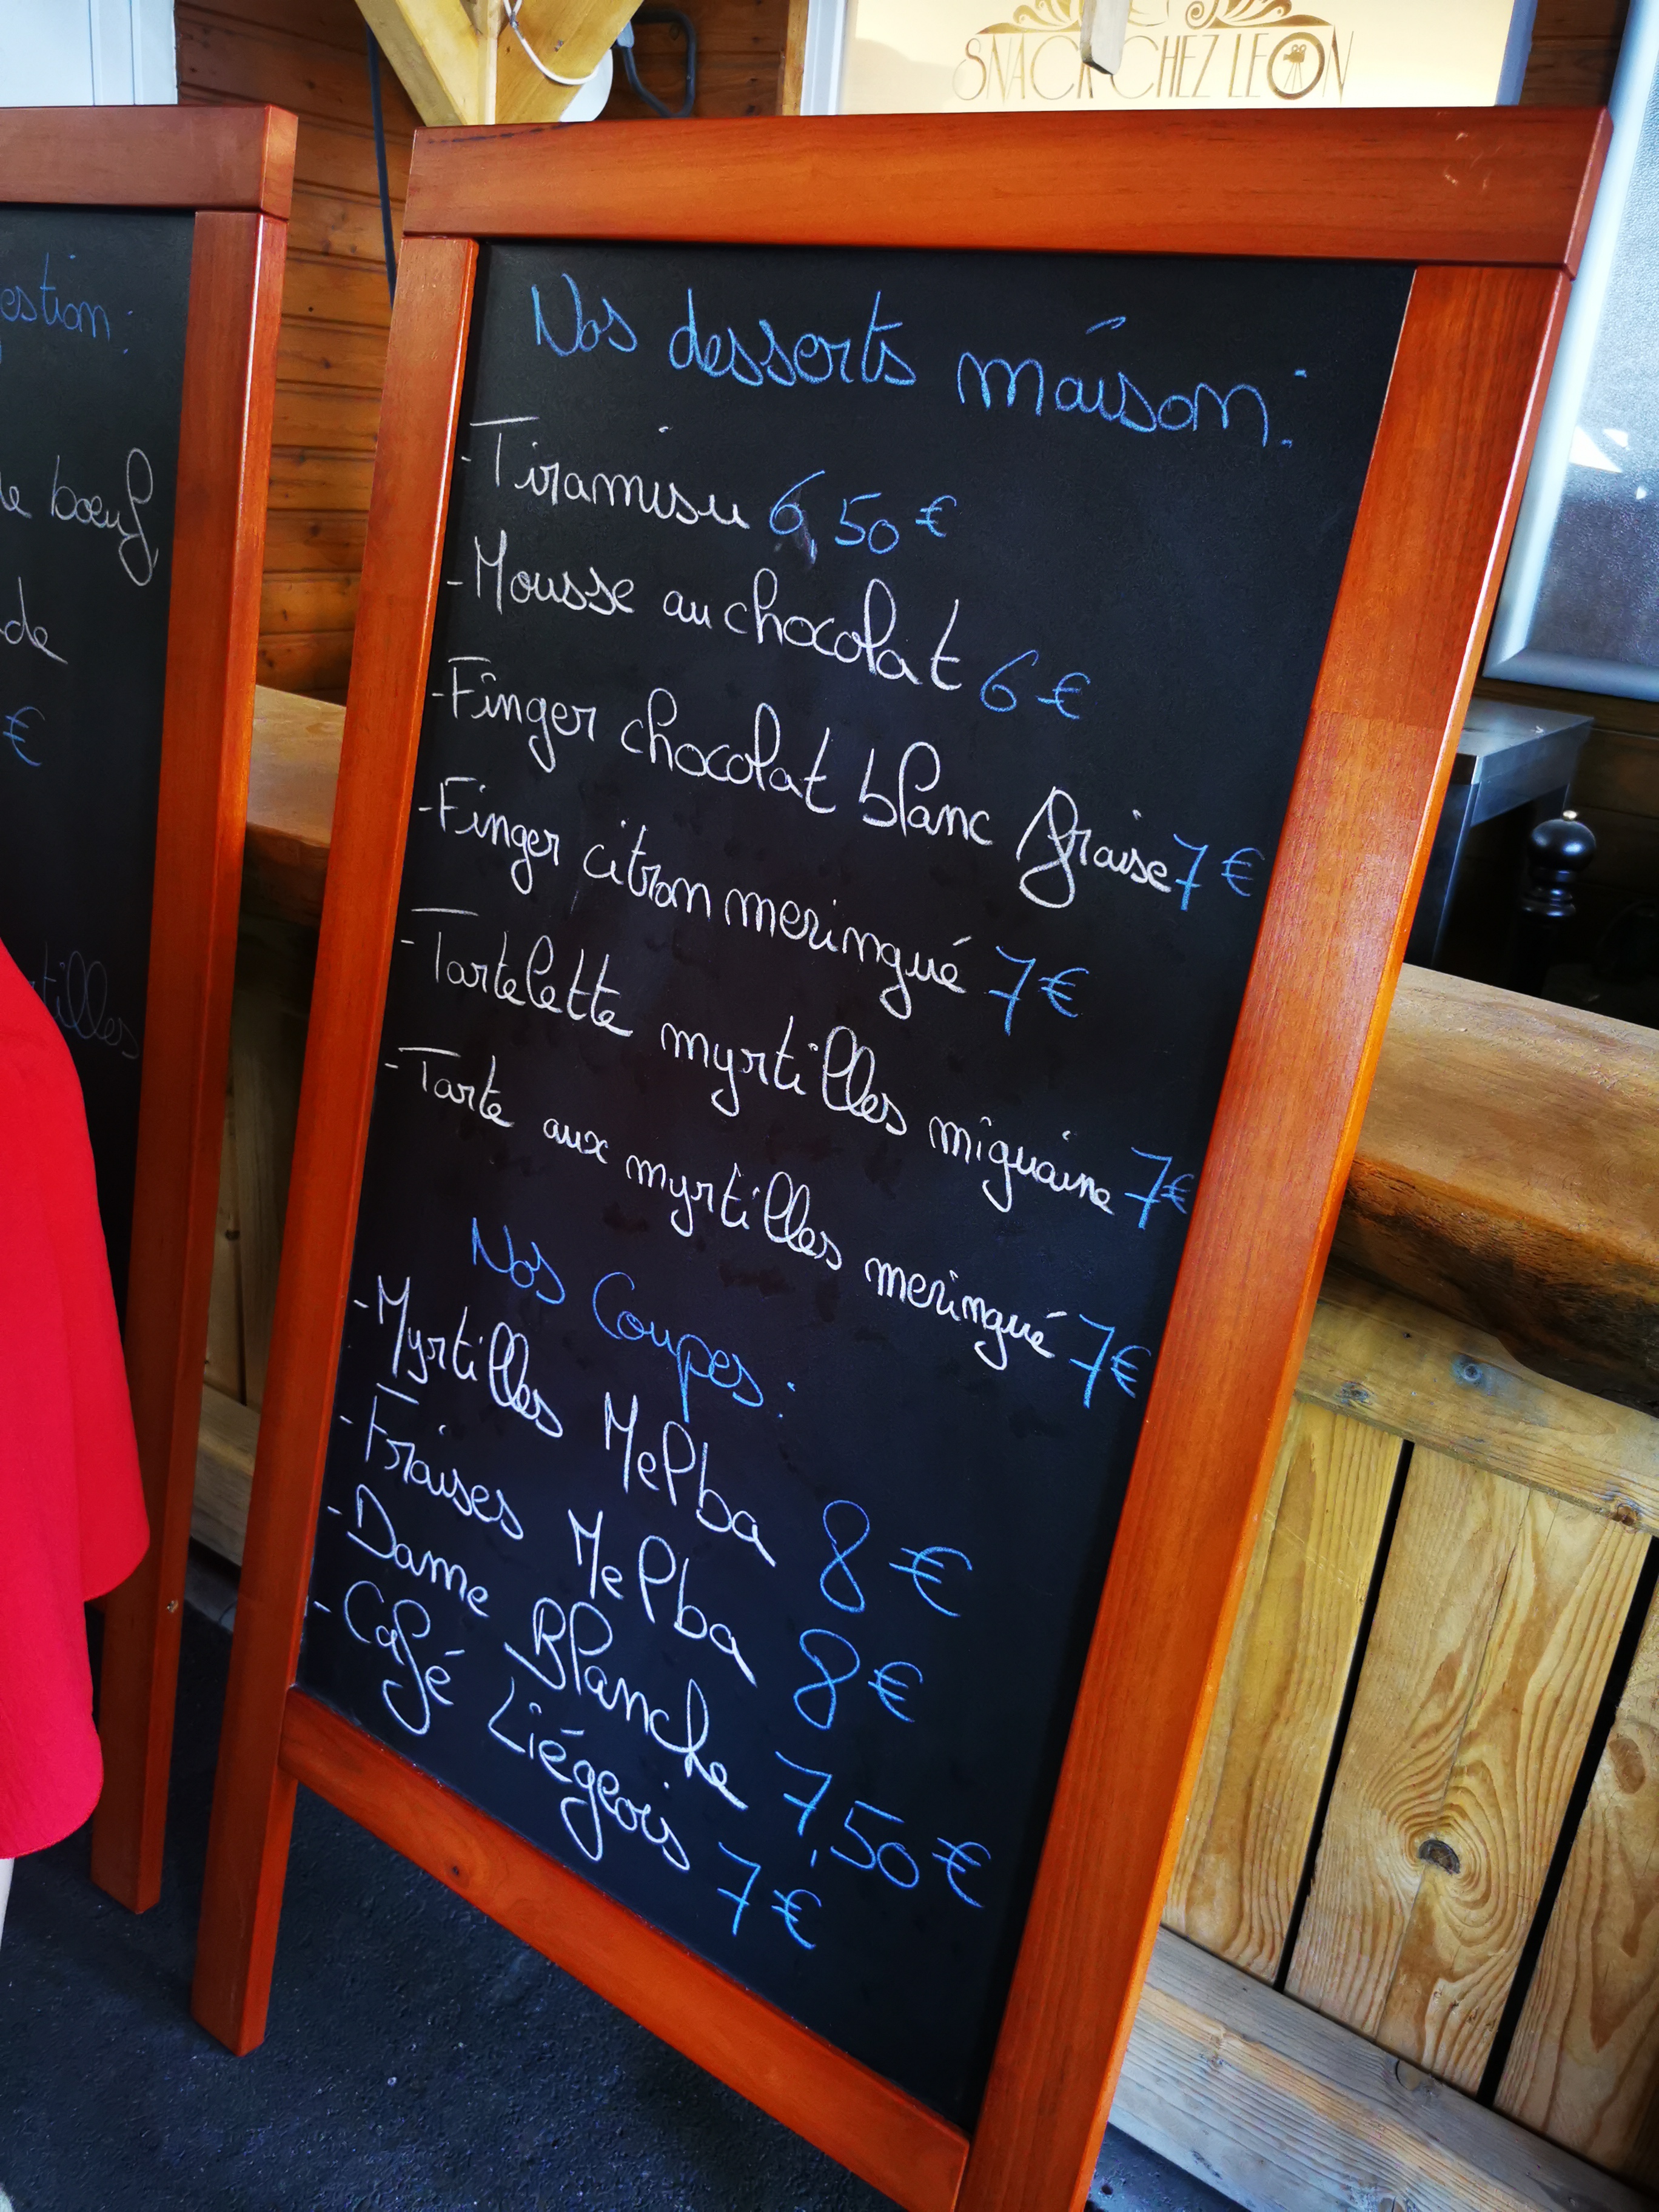 SNACK CHEZ LEON
Nos desserts maison:
- Tiramisu 6,50 €
- Mousse au chocolat 6 €
- Finger chocolat blanc fraise 7 €
- Finger citron meringué 7 €
- Tartelette myrtilles miguaine 7 €
- Tarte aux myrtilles meringué 7 €
Nos Coupes:
- Myrtilles Melba 8 €
- Fraises Melba 8 €
- Dame Blanche 7,50 €
- Café Liégeois 7 €
estion:
boeuf
de
€
tilles